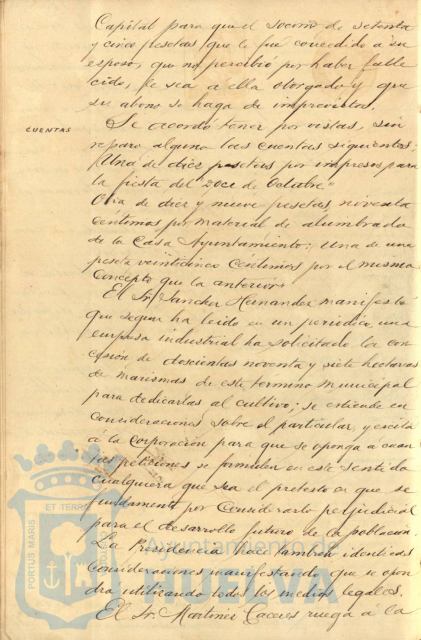 Capital para que el socorro de setenta
y cinco pesetas que le fue concedido á su
esposo, que no percibió por haber falle
cido, le sea á ella otorgado y que
su abono se haga de imprevistos.
CUENTAS
Se acordó tener por vistas, sin
reparo alguno las cuentas siguientes:
Una de diez pesetas por impresos para
la fiesta del doce de Octubre"
Otra de diez y nueve pesetas noventa
céntimos por material de alumbrado
de la Casa Ayuntamiento; Una de una
peseta veinticinco céntimos por el mismo
concepto que la anterior.
El Sr. Sanchez Hernandez manifestó
que segun ha leido en un periodico una
empresa industrial ha solicitado la con
cesión de doscientas noventa y siete hectareas
de marismas de este termino municipal
para dedicarlas al cultivo; se extiende en
consideraciones sobre el particular, y excita
á la Corporación para que se oponga a cuan
tas peticiones se formulen en este sentido
cualquiera que sea el pretesto en que se
fundamente por considerarlo perjudicial
para el desarrollo futuro de la población.
La Presidencia hace tambien identicas
consideraciones manifestando que se opon
drá utilizando todos los medios legales.
El Sr. Martinez Caceres ruega á la
PORTUS MARIS
ET TERRÆ
Ayuntamiento de
HUELVA